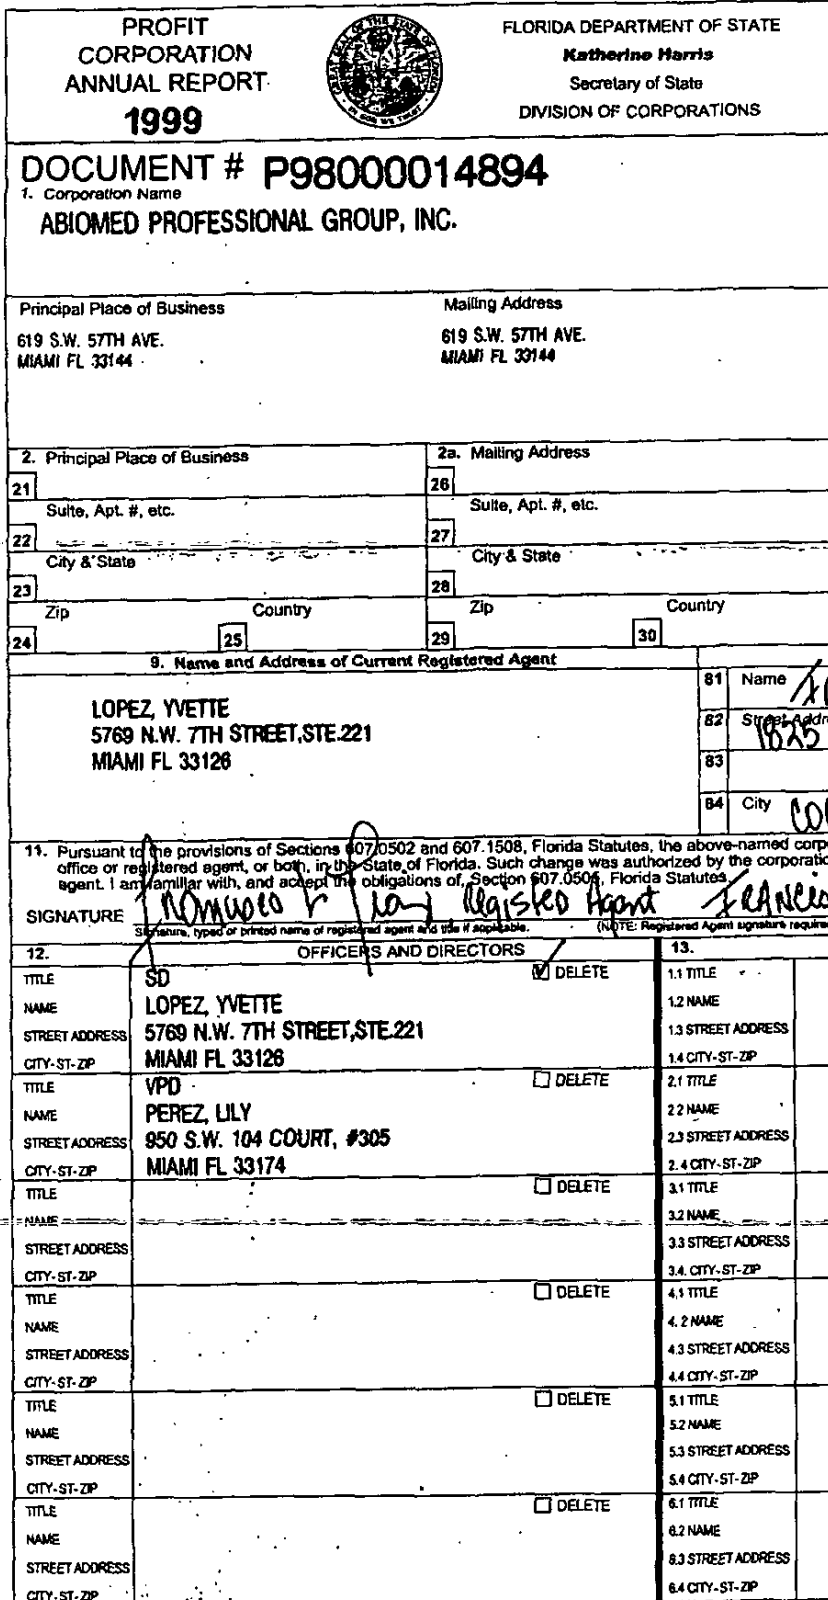 PROFIT
CORPORATION
ANNUAL REPORT
1999
FLORIDA DEPARTMENT OF STATE
Katherine Harris
Secretary of State
DIVISION OF CORPORATIONS
DOCUMENT # P98000014894
1. Corporation Name
ABIOMED PROFESSIONAL GROUP, INC.
Principal Place of Business
619 S.W. 57TH AVE.
MIAMI FL 33144
Mailing Address
619 S.W. 57TH AVE.
MIAMI FL 33144
2. Principal Place of Business
2a. Mailing Address
21
26
Suite, Apt. #, etc.
Suite, Apt. #, etc.
22
27
City & State
City & State
23
28
Zip
Country
Zip
Country
24
25
29
30
9. Name and Address of Current Registered Agent
LOPEZ, YVETTE
5769 N.W. 7TH STREET,STE.221
MIAMI FL 33126
81 Name
82 Street
1825
83
84 City
11. Pursuant to the provisions of Sections 607.0502 and 607.1508, Florida Statutes, the above-named
office or registered agent, or both, in the State of Florida. Such change was authorized by the
agent. I am familiar with, and accept the obligations of, Section 607.0505, Florida Statutes.
SIGNATURE Agent
Signature, typed or printed name of registered agent and title if applicable. (NOTE: Registered Agent signature
12. OFFICERS AND DIRECTORS
13.
TITLE SD DELETE
NAME LOPEZ, YVETTE
STREET ADDRESS 5769 N.W. 7TH STREET,STE.221
CITY-ST-ZIP MIAMI FL 33126
TITLE VPD DELETE
NAME PEREZ, LILY
STREET ADDRESS 950 S.W. 104 COURT, #305
CITY-ST-ZIP MIAMI FL 33174
TITLE DELETE
NAME
STREET ADDRESS
CITY-ST-ZIP
TITLE DELETE
NAME
STREET ADDRESS
CITY-ST-ZIP
TITLE DELETE
NAME
STREET ADDRESS
CITY-ST-ZIP
TITLE DELETE
NAME
STREET ADDRESS
CITY-ST-ZIP
1.1 TITLE
1.2 NAME
1.3 STREET ADDRESS
1.4 CITY-ST-ZIP
2.1 TITLE
2.2 NAME
2.3 STREET ADDRESS
2.4 CITY-ST-ZIP
3.1 TITLE
3.2 NAME
3.3 STREET ADDRESS
3.4. CITY-ST-ZIP
4.1 TITLE
4.2 NAME
4.3 STREET ADDRESS
4.4 CITY-ST-ZIP
5.1 TITLE
5.2 NAME
5.3 STREET ADDRESS
5.4 CITY-ST-ZIP
6.1 TITLE
6.2 NAME
6.3 STREET ADDRESS
6.4 CITY-ST-ZIP